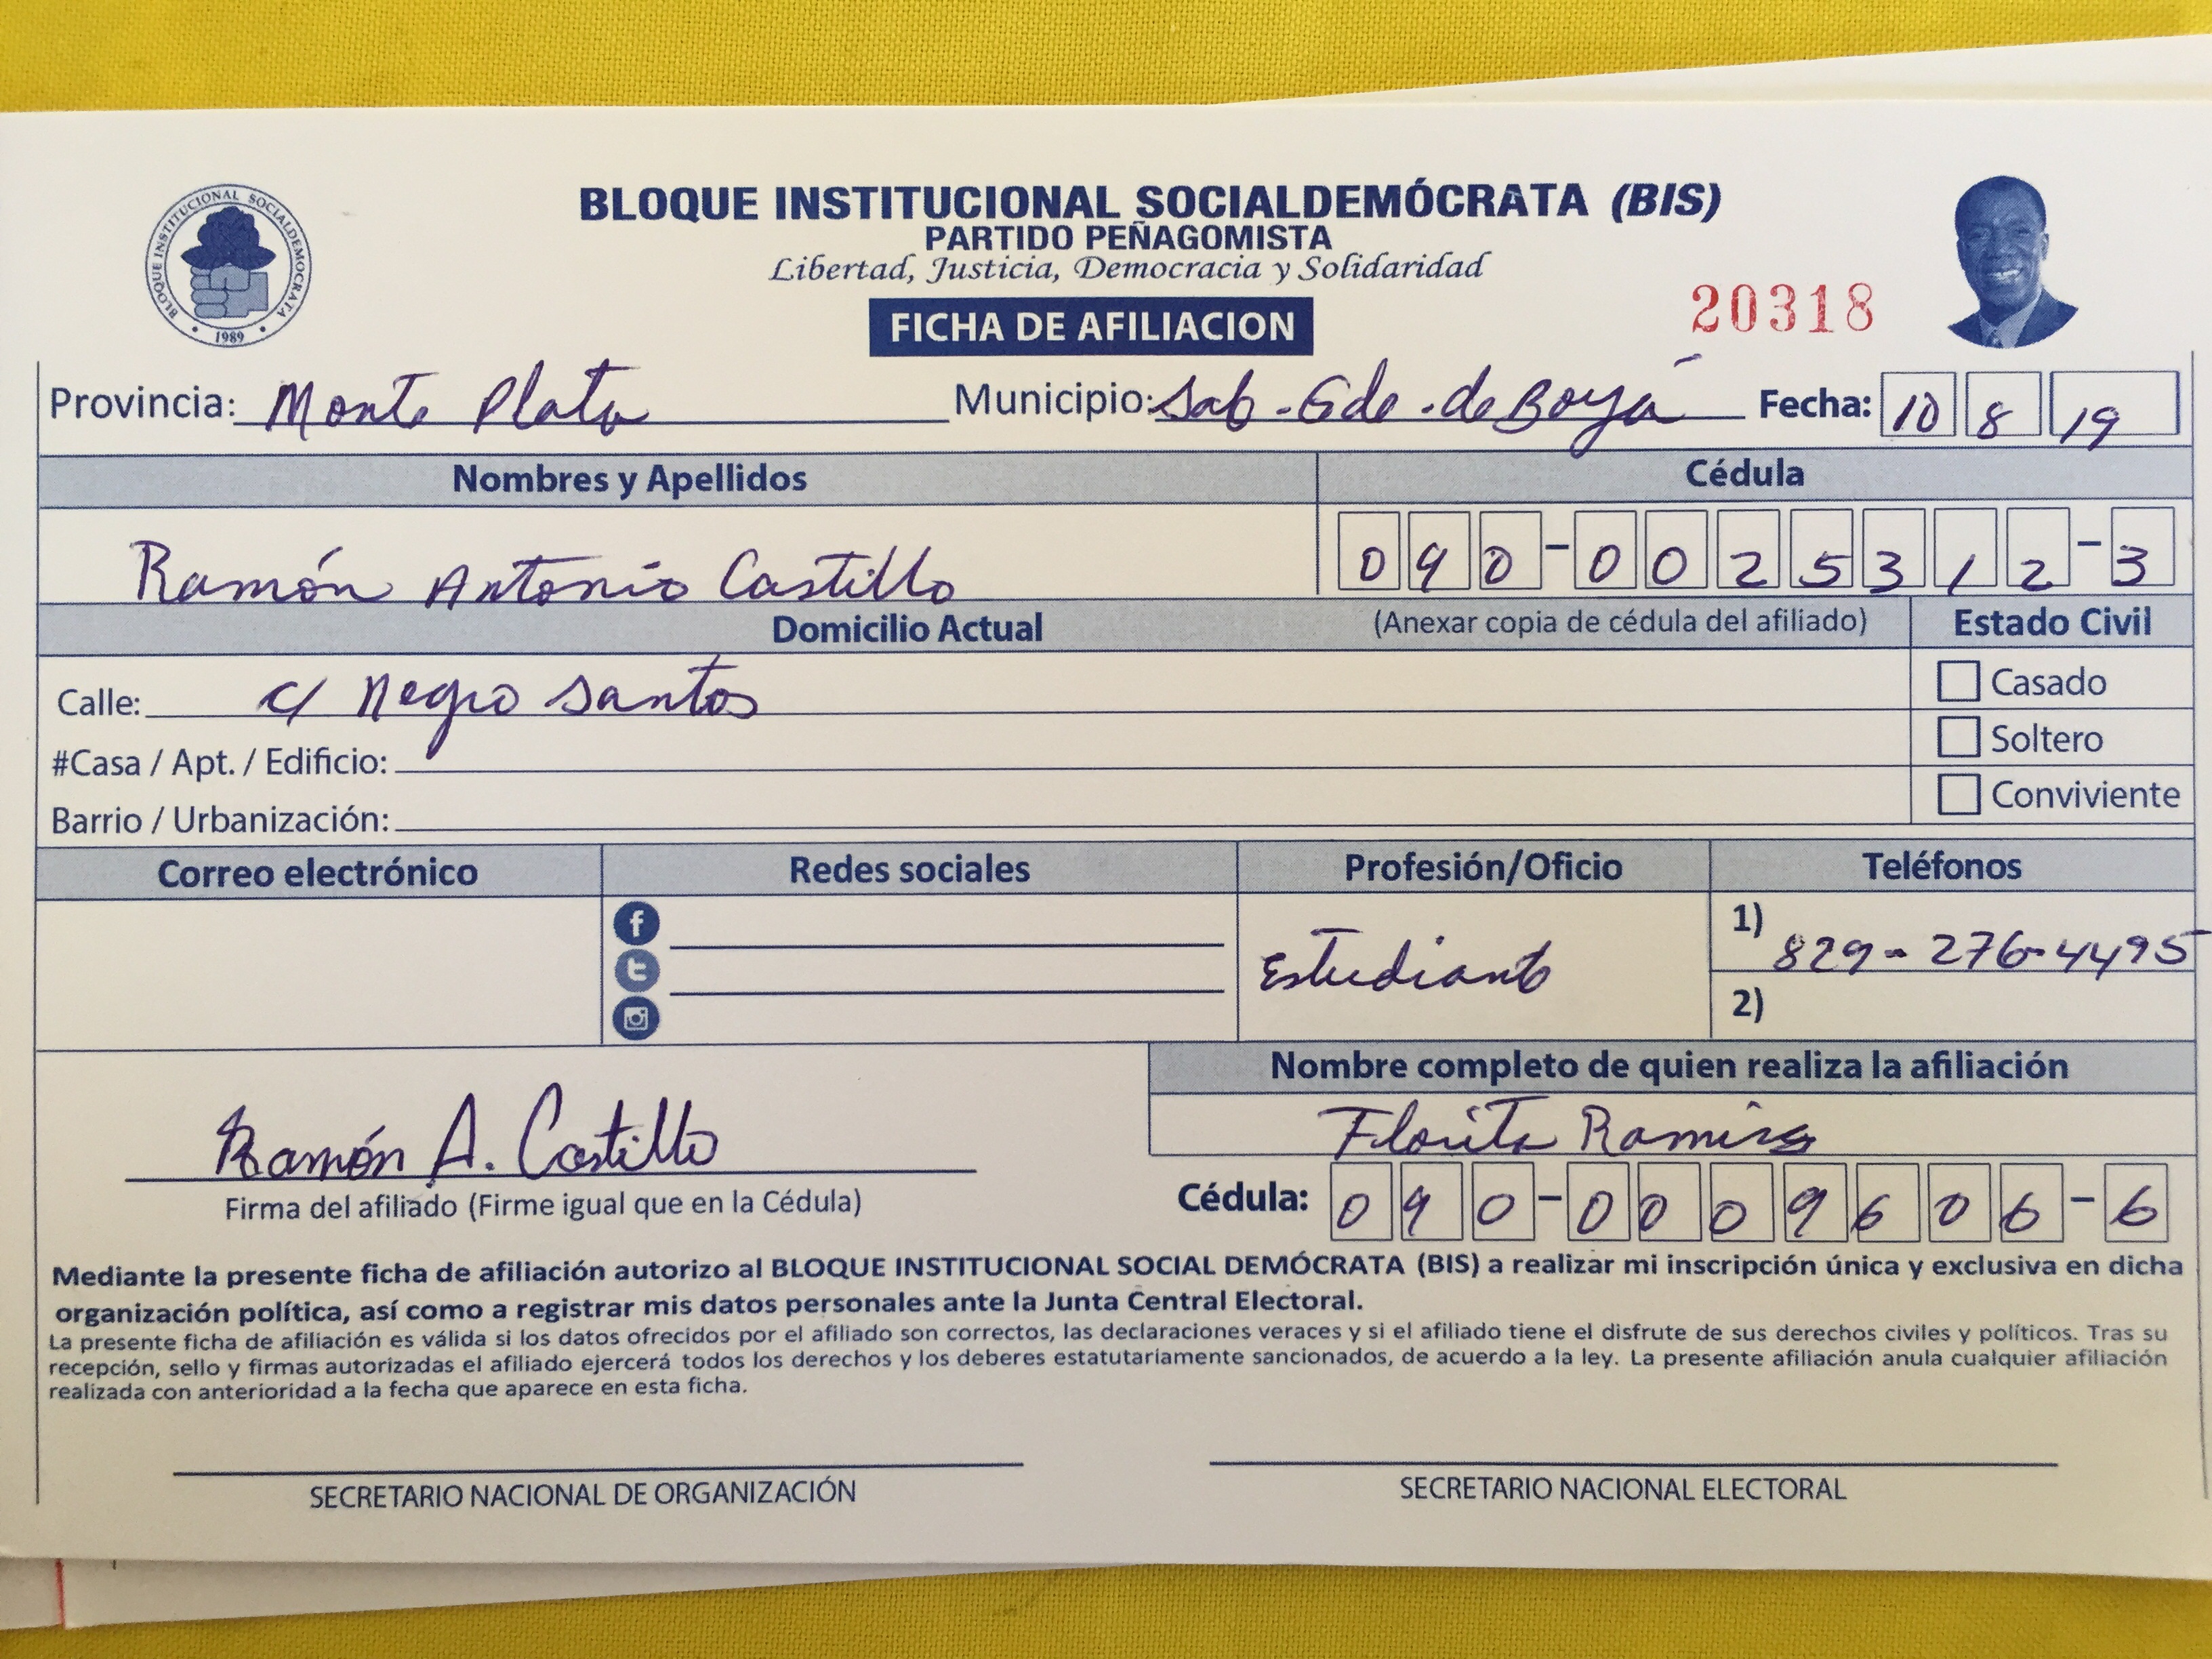 BLOQUE INSTITUCIONAL SOCIALDEMÓCRATA (BIS)
PARTIDO PEÑAGOMISTA
Libertad, Justicia, Democracia y Solidaridad
BLOQUE INSTITUCIONAL SOCIALDEMOCRATA
1989
FICHA DE AFILIACION
20318
Provincia: Monte Plata Municipio: Sab. Gde. de Boyá Fecha: 10 8 19
Nombres y Apellidos Cédula
Ramón Antonio Castillo 090-0025312-3
Domicilio Actual (Anexar copia de cédula del afiliado) Estado Civil
Calle: c/ Negro Santos Casado
#Casa / Apt. / Edificio: Soltero
Barrio / Urbanización: Conviviente
Correo electrónico Redes sociales Profesión/Oficio Teléfonos
Estudiante 1) 829-276-4495
2)
Nombre completo de quien realiza la afiliación
Ramón A. Castillo Florita Ramirez
Firma del afiliado (Firme igual que en la Cédula) Cédula: 090-0009606-6
Mediante la presente ficha de afiliación autorizo al BLOQUE INSTITUCIONAL SOCIAL DEMÓCRATA (BIS) a realizar mi inscripción única y exclusiva en dicha
organización política, así como a registrar mis datos personales ante la Junta Central Electoral.
La presente ficha de afiliación es válida si los datos ofrecidos por el afiliado son correctos, las declaraciones veraces y si el afiliado tiene el disfrute de sus derechos civiles y políticos. Tras su
recepción, sello y firmas autorizadas el afiliado ejercerá todos los derechos y los deberes estatutariamente sancionados, de acuerdo a la ley. La presente afiliación anula cualquier afiliación
realizada con anterioridad a la fecha que aparece en esta ficha.
SECRETARIO NACIONAL DE ORGANIZACIÓN SECRETARIO NACIONAL ELECTORAL